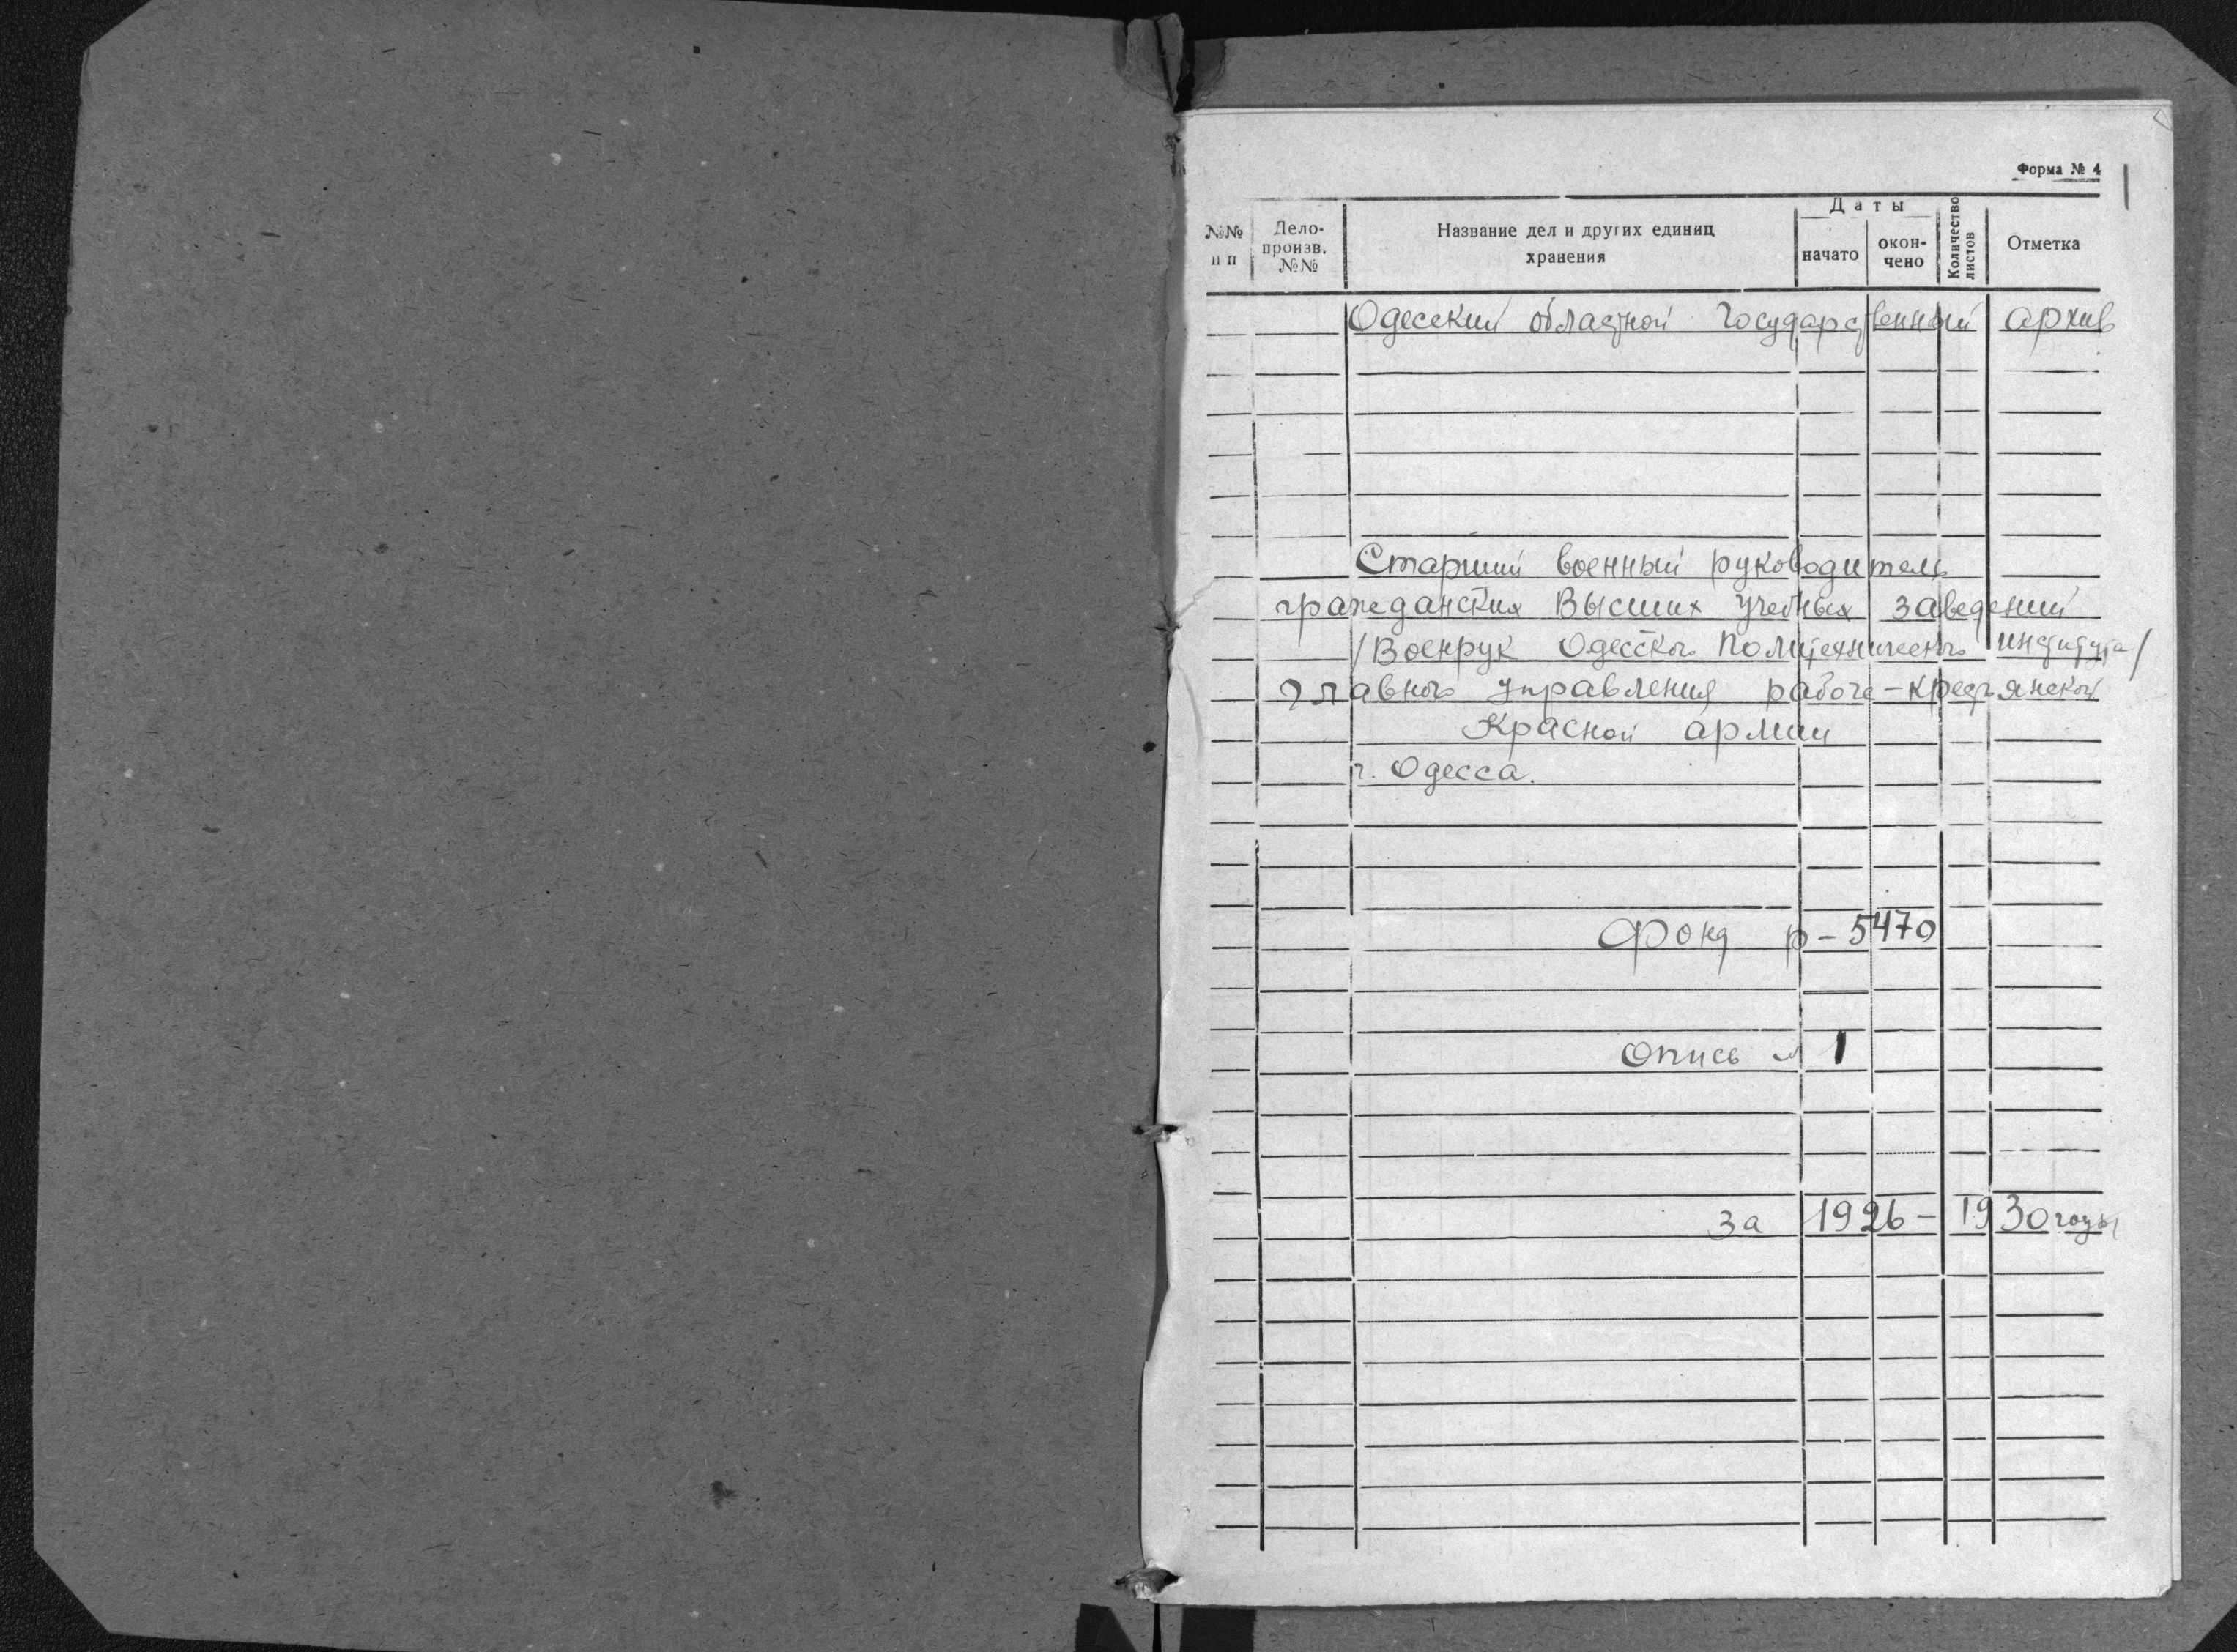 Форма № 4
№№ п п
Дело-произв. №№
Название дел и других единиц хранения
Даты
начато
окончено
Количество листов
Отметка
Одесский областной государственный архив
Старший военный руководитель
гражданских высших учебных заведений
/Военрук Одесского Политехнического института/
Главного управления рабоче-крестьянской
Красной армии
г. Одесса.
Фонд р-5470
Опись № 1
за 1926-1930 годы